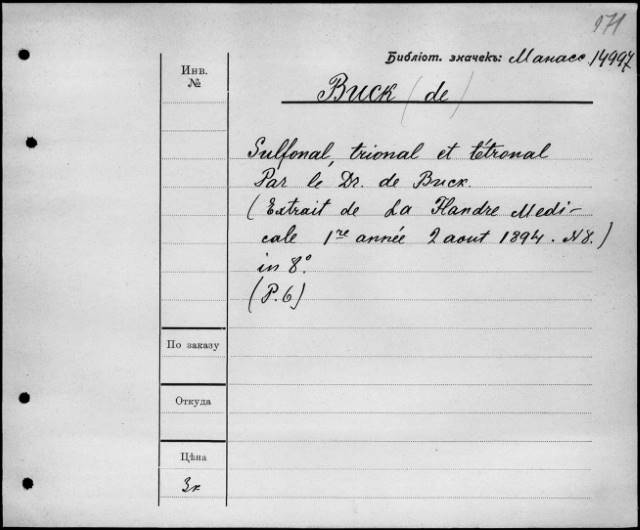 971
Библіот. значекъ: Манасс 14997
Инв.
№
Buck (de)
Sulfonal, trional et tétronal
Par le Dr. de Buck.
(Extrait de La Flandre Medi-
cale 1re année 2 aout 1894. N8.)
in 8°.
(P. 6)
По заказу
Откуда
Цѣна
3к